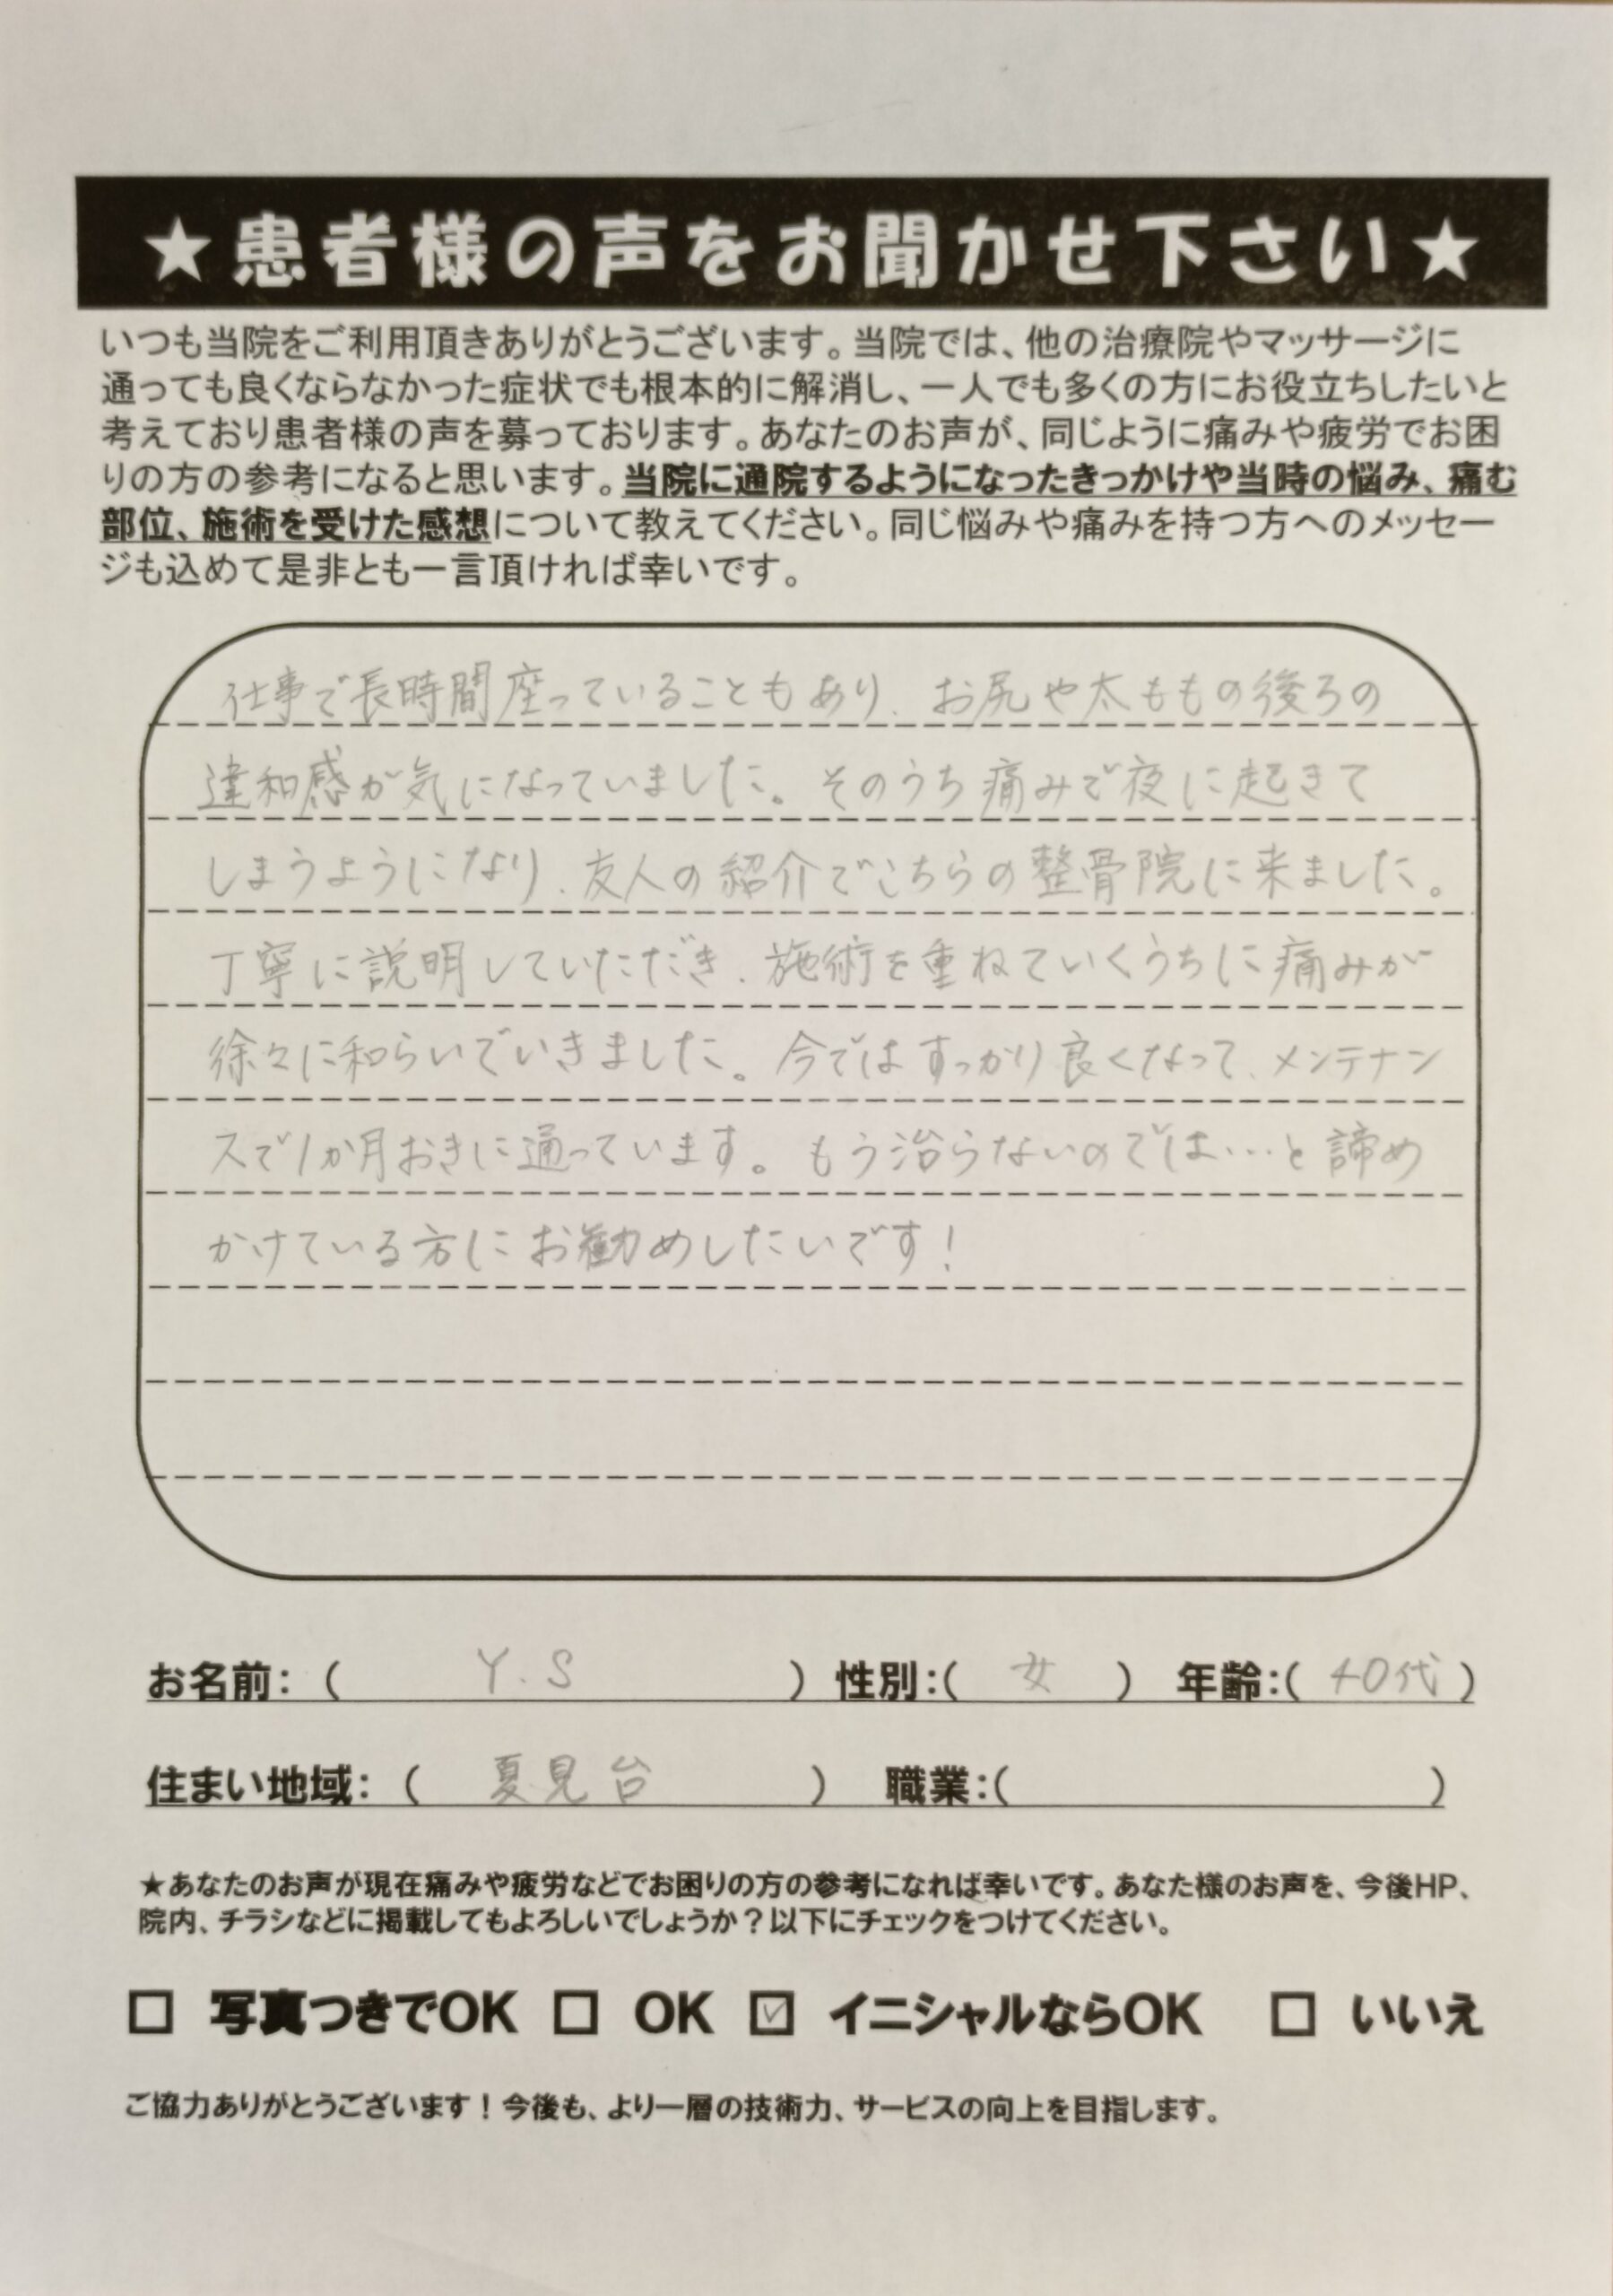 ★患者様の声をお聞かせ下さい★
いつも当院をご利用頂きありがとうございます。当院では、他の治療院やマッサージに
通っても良くならなかった症状でも根本的に解消し、一人でも多くの方にお役立ちしたいと
考えており患者様の声を募っております。あなたのお声が、同じように痛みや疲労でお困
りの方の参考になると思います。当院に通院するようになったきっかけや当時の悩み、痛む
部位、施術を受けた感想について教えてください。同じ悩みや痛みを持つ方へのメッセー
ジも込めて是非とも一言頂ければ幸いです。
仕事で長時間座っていることもあり、お尻や太ももの後ろの
違和感が気になっていました。そのうち痛みで夜に起きて
しまうようになり、友人の紹介でこちらの整骨院に来ました。
丁寧に説明していただき、施術を重ねていくうちに痛みが
徐々に和らいでいきました。今ではすっかり良くなって、メンテナン
スで1か月おきに通っています。もう治らないのでは…と諦め
かけている方にお勧めしたいです!
お名前:( Y.S ) 性別:( 女 ) 年齢:( 40代 )
住まい地域:( 夏見台 ) 職業:( )
★あなたのお声が現在痛みや疲労などでお困りの方の参考になれば幸いです。あなた様のお声を、今後HP、
院内、チラシなどに掲載してもよろしいでしょうか?以下にチェックをつけてください。
□ 写真つきでOK □ OK ☑ イニシャルならOK □ いいえ
ご協力ありがとうございます!今後も、より一層の技術力、サービスの向上を目指します。